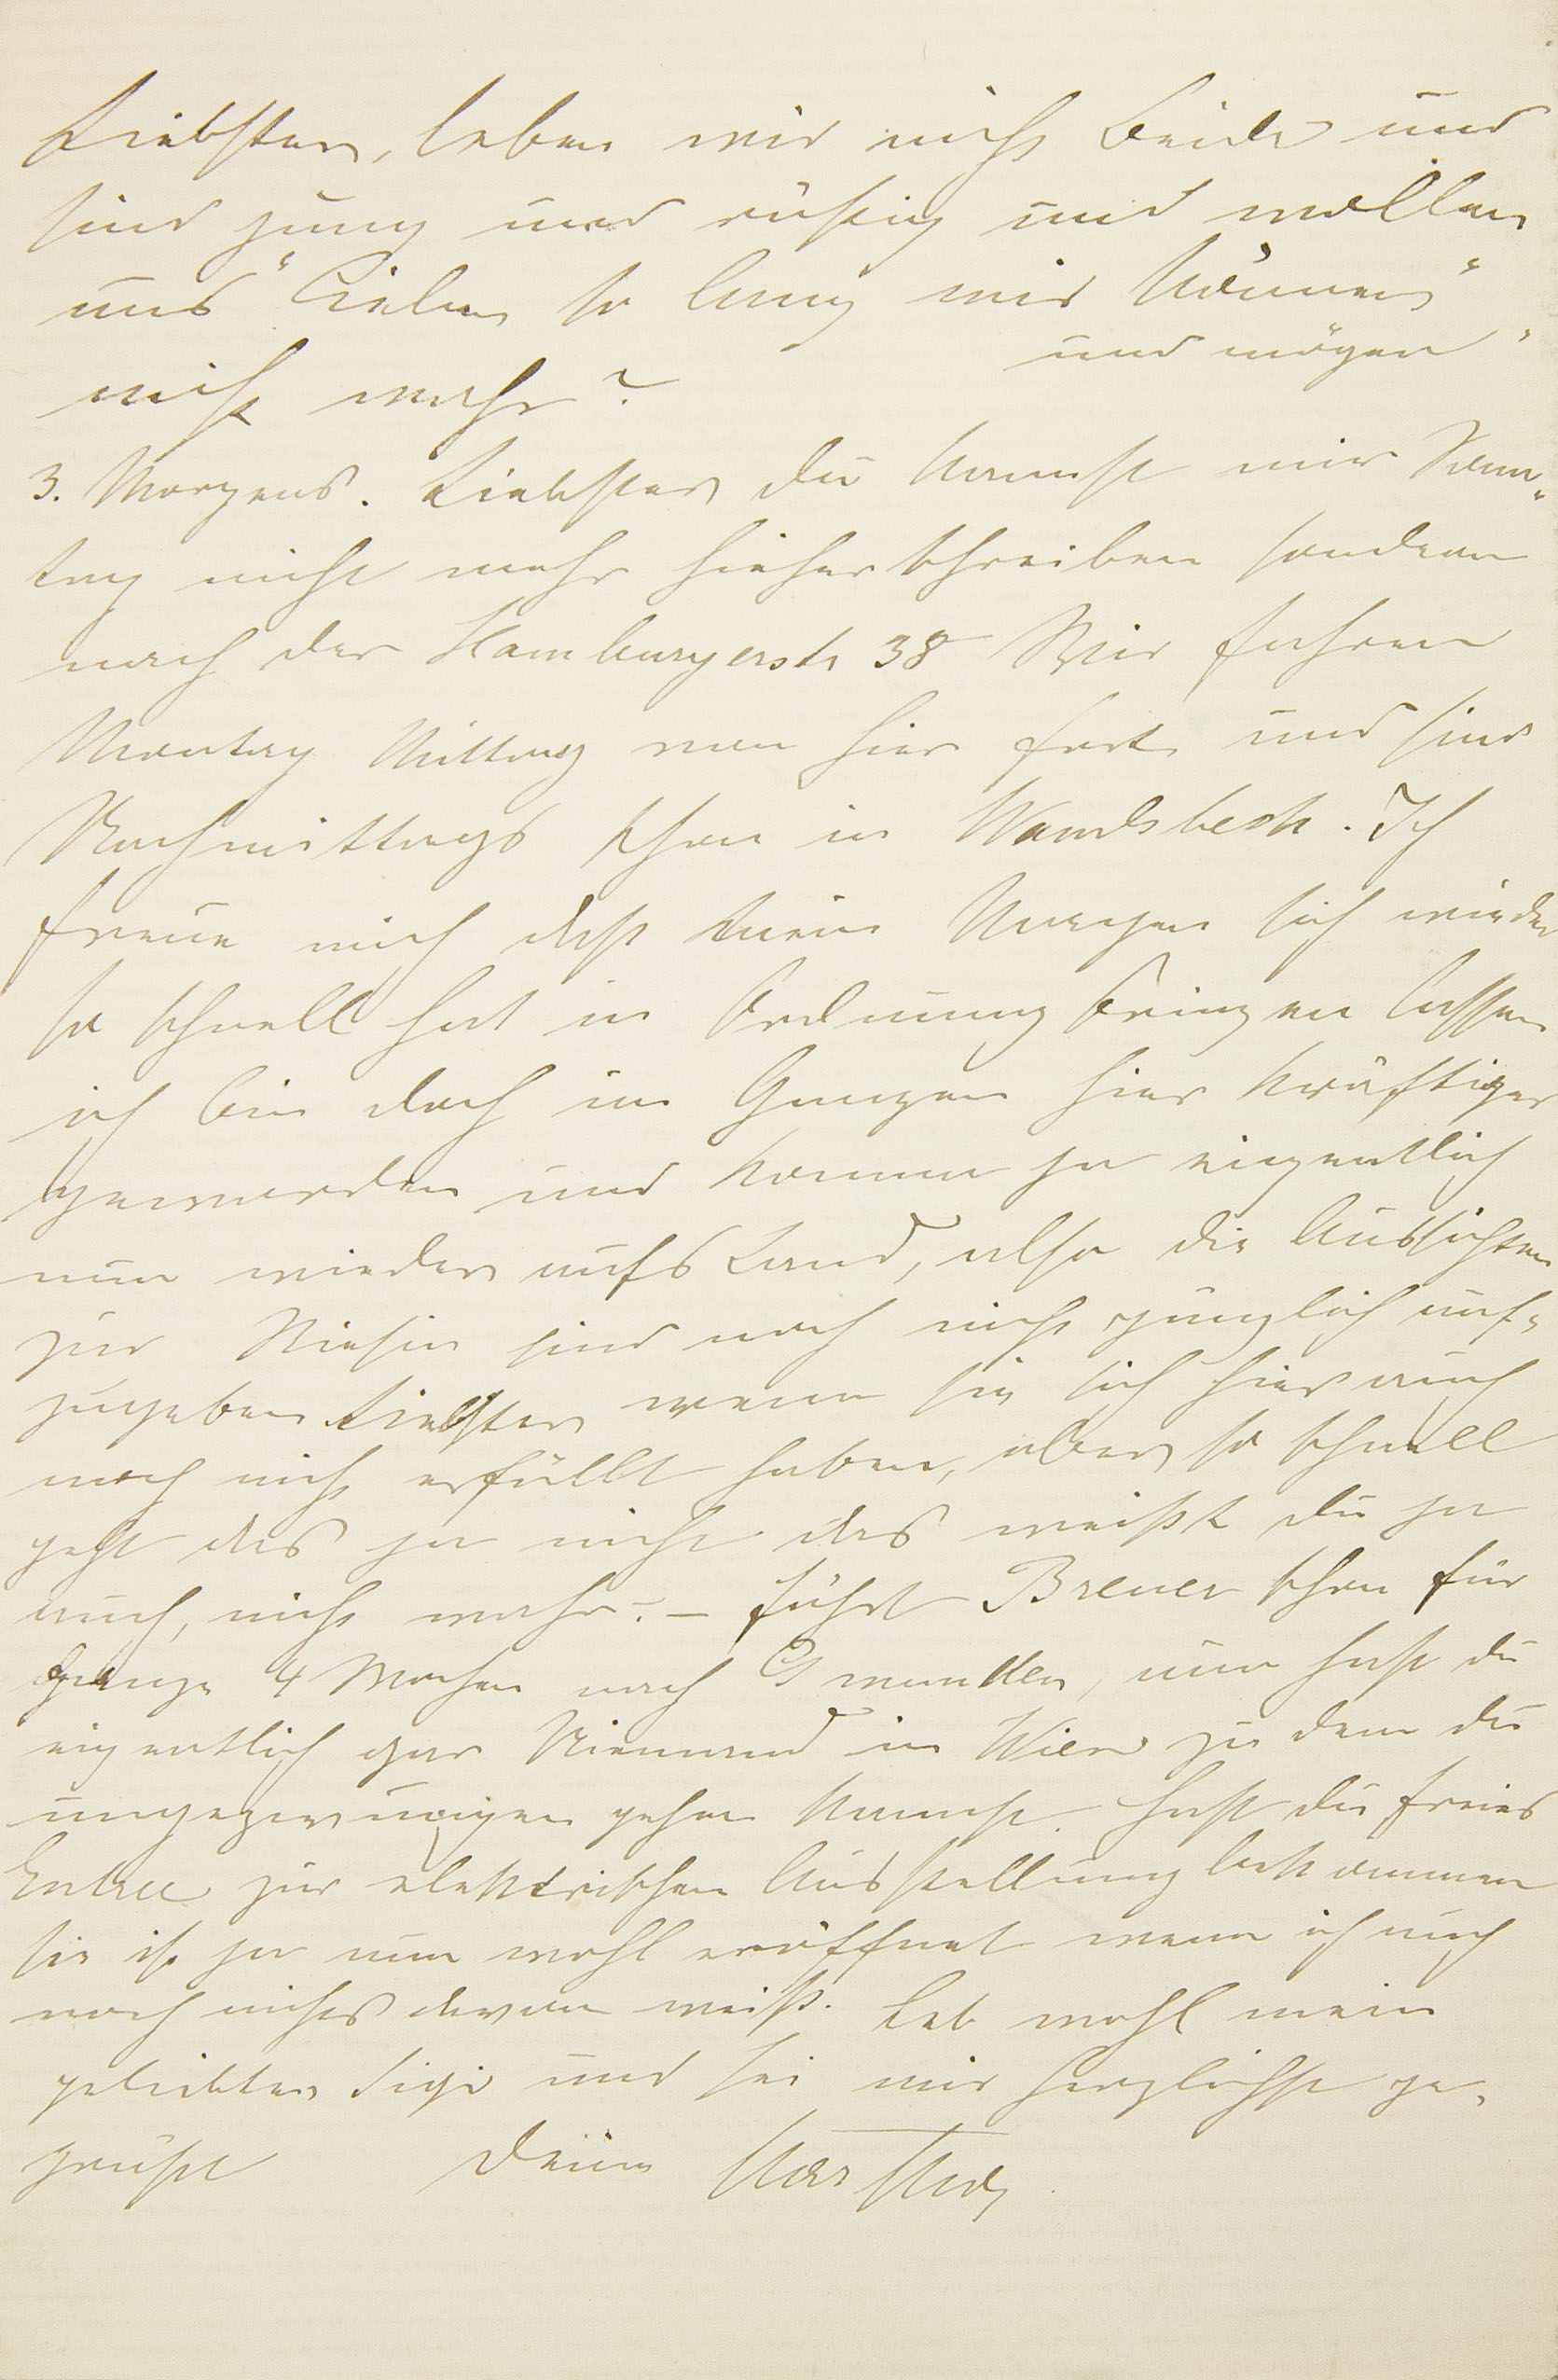 Liebster, leben wir nicht Beide und
sind jung und rüstig und wollen
uns "lieben so lang wir können"
und mögen",
nicht wahr?
3. Morgens. Liebster du kannst mir Sonn„
tag nicht mehr hieher schreiben sondern
nach der Hamburgerstr 38 Wir fahren
Montag Mittag von hier fort und sind
Nachmittags schon in Wandsbeck. Ich
freue mich daß Dein Magen sich wieder
so schnell hat in Ordnung bringen lassen
ich bin doch im Ganzen hier kräftiger
geworden und komme ja eigentlich
nun wieder aufs Land, also die Aussichten
zur Riesin sind noch nicht gänzlich auf„
zugeben Liebster wenn sie sich hier auch
noch nicht erfüllt haben, aber so schnell
geht das ja nicht das weißt du ja
auch, nicht wahr? – Fährt Breuer schon für
ganze 4 Wochen nach Gmunden, nun hast du
eigentlich gar Niemand in Wien zu dem du
ungezwungen gehen kannst. Hast du freies
Entree zur elektrischen Ausstellung bekommen
sie ist ja nun wohl eröffnet wenn ich auch
noch nichts davon weiß. Leb wohl mein
geliebter Sigi und sei mir herzlichst ge„
grüßt Deine Martha